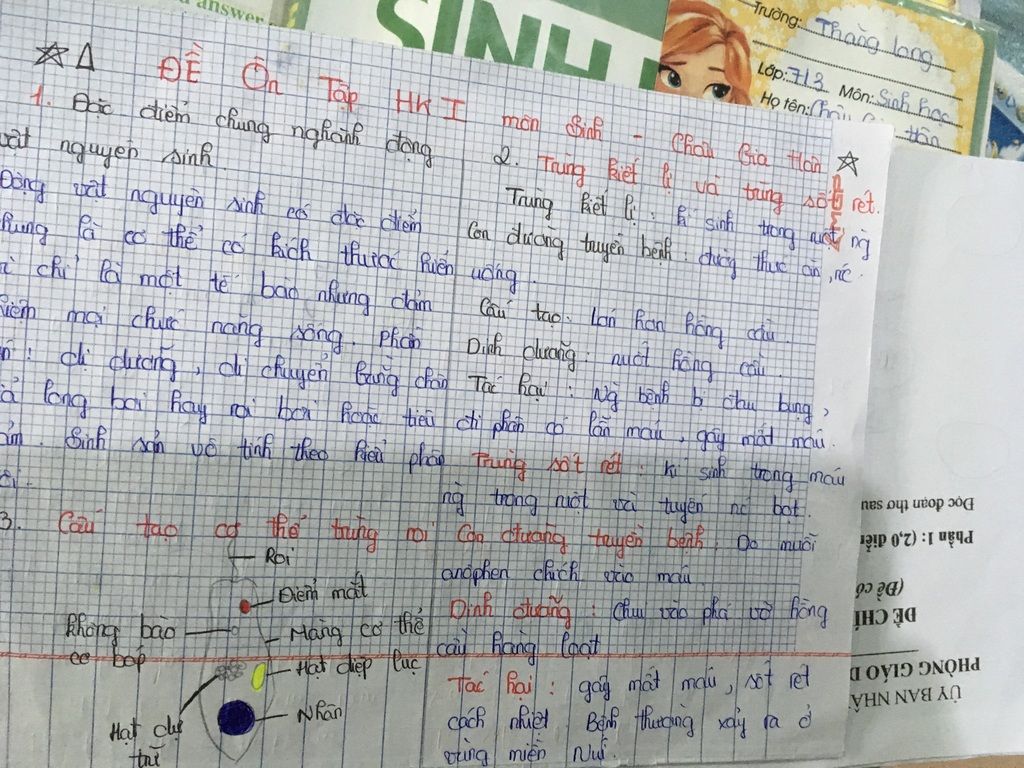 answer
SINH
Trường: Thăng Long
Lớp: 7/3 Môn: Sinh học
Họ tên: Châu Gia Hân
ĐỀ Ôn Tập HK I môn Sinh - Châu Gia Hân
1. Đặc điểm chung nghành động
vật nguyên sinh
Động vật nguyên sinh có đặc điểm
chung là cơ thể có kích thước hiển
vi chỉ là một tế bào nhưng đảm
nhiệm mọi chức năng sống. phần
dị dưỡng, di chuyển bằng chân
giả lông bơi hay roi bơi hoặc tiêu
giảm. Sinh sản vô tính theo kiểu phân
đôi.
3. Cấu tạo cơ thể trùng roi
Roi
Điểm mắt
Không bào
co bóp
Màng cơ thể
Hạt diệp lục
Hạt dự
trữ
Nhân
2. Trùng kiết lị và trùng sốt rét.
Trùng kiết lị: kí sinh trong ruột ng̀
Con đường truyền bệnh: đường thức ăn, nc
uống.
Cấu tạo: lớn hơn hồng cầu.
Dinh dưỡng: nuốt hồng cầu.
Tác hại: Ng̀ bệnh bị đau bụng,
đi phân có lẫn máu, gây mất máu.
Trùng sốt rét: kí sinh trong máu
ng̀ trong ruột và tuyến nc bọt.
Con đường truyền bệnh: Do muỗi
anôphen chích vào máu
Dinh dưỡng: chui vào phá vỡ hồng
cầu hàng loạt
Tác hại: gây mất máu, sốt rét
cách nhiệt. Bệnh thường xảy ra ở
vùng miền Núi.
ỦY BAN NHÂ
PHÒNG GIÁO D
ĐỀ CHÍ
(Đề có
Phần 1: (2,0 điểm
Đọc đoạn thơ sau